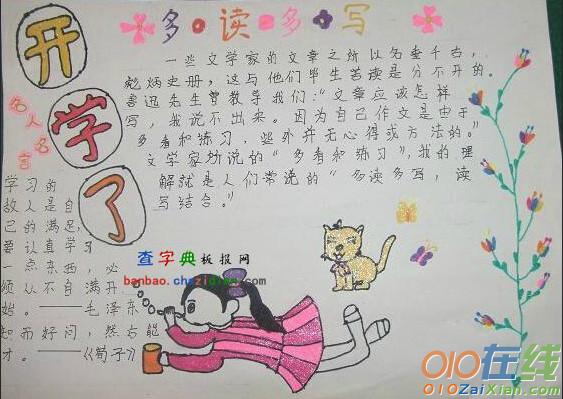 开学了
多·读·多·写
一些文学家的文章之所以名垂千古,
彪炳史册,这与他们毕生苦读是分不开的。
鲁迅先生曾教导我们:“文章应该怎样
写,我说不出来。因为自己作文是由于
多看和练习,此外并无心得或方法的。”
文学家所说的“多看和练习”,我的理
解就是人们常说的“多读多写,读
写结合。”
名人名言
学习的
敌人是自
己的满足,
要认真学习
一点东西,必
须从不自满开
始。——毛泽东
知而好问,然后能
才。——《荀子》
查字典 板报网
banbao.chazidian.com
010在线
010ZaiXian.com